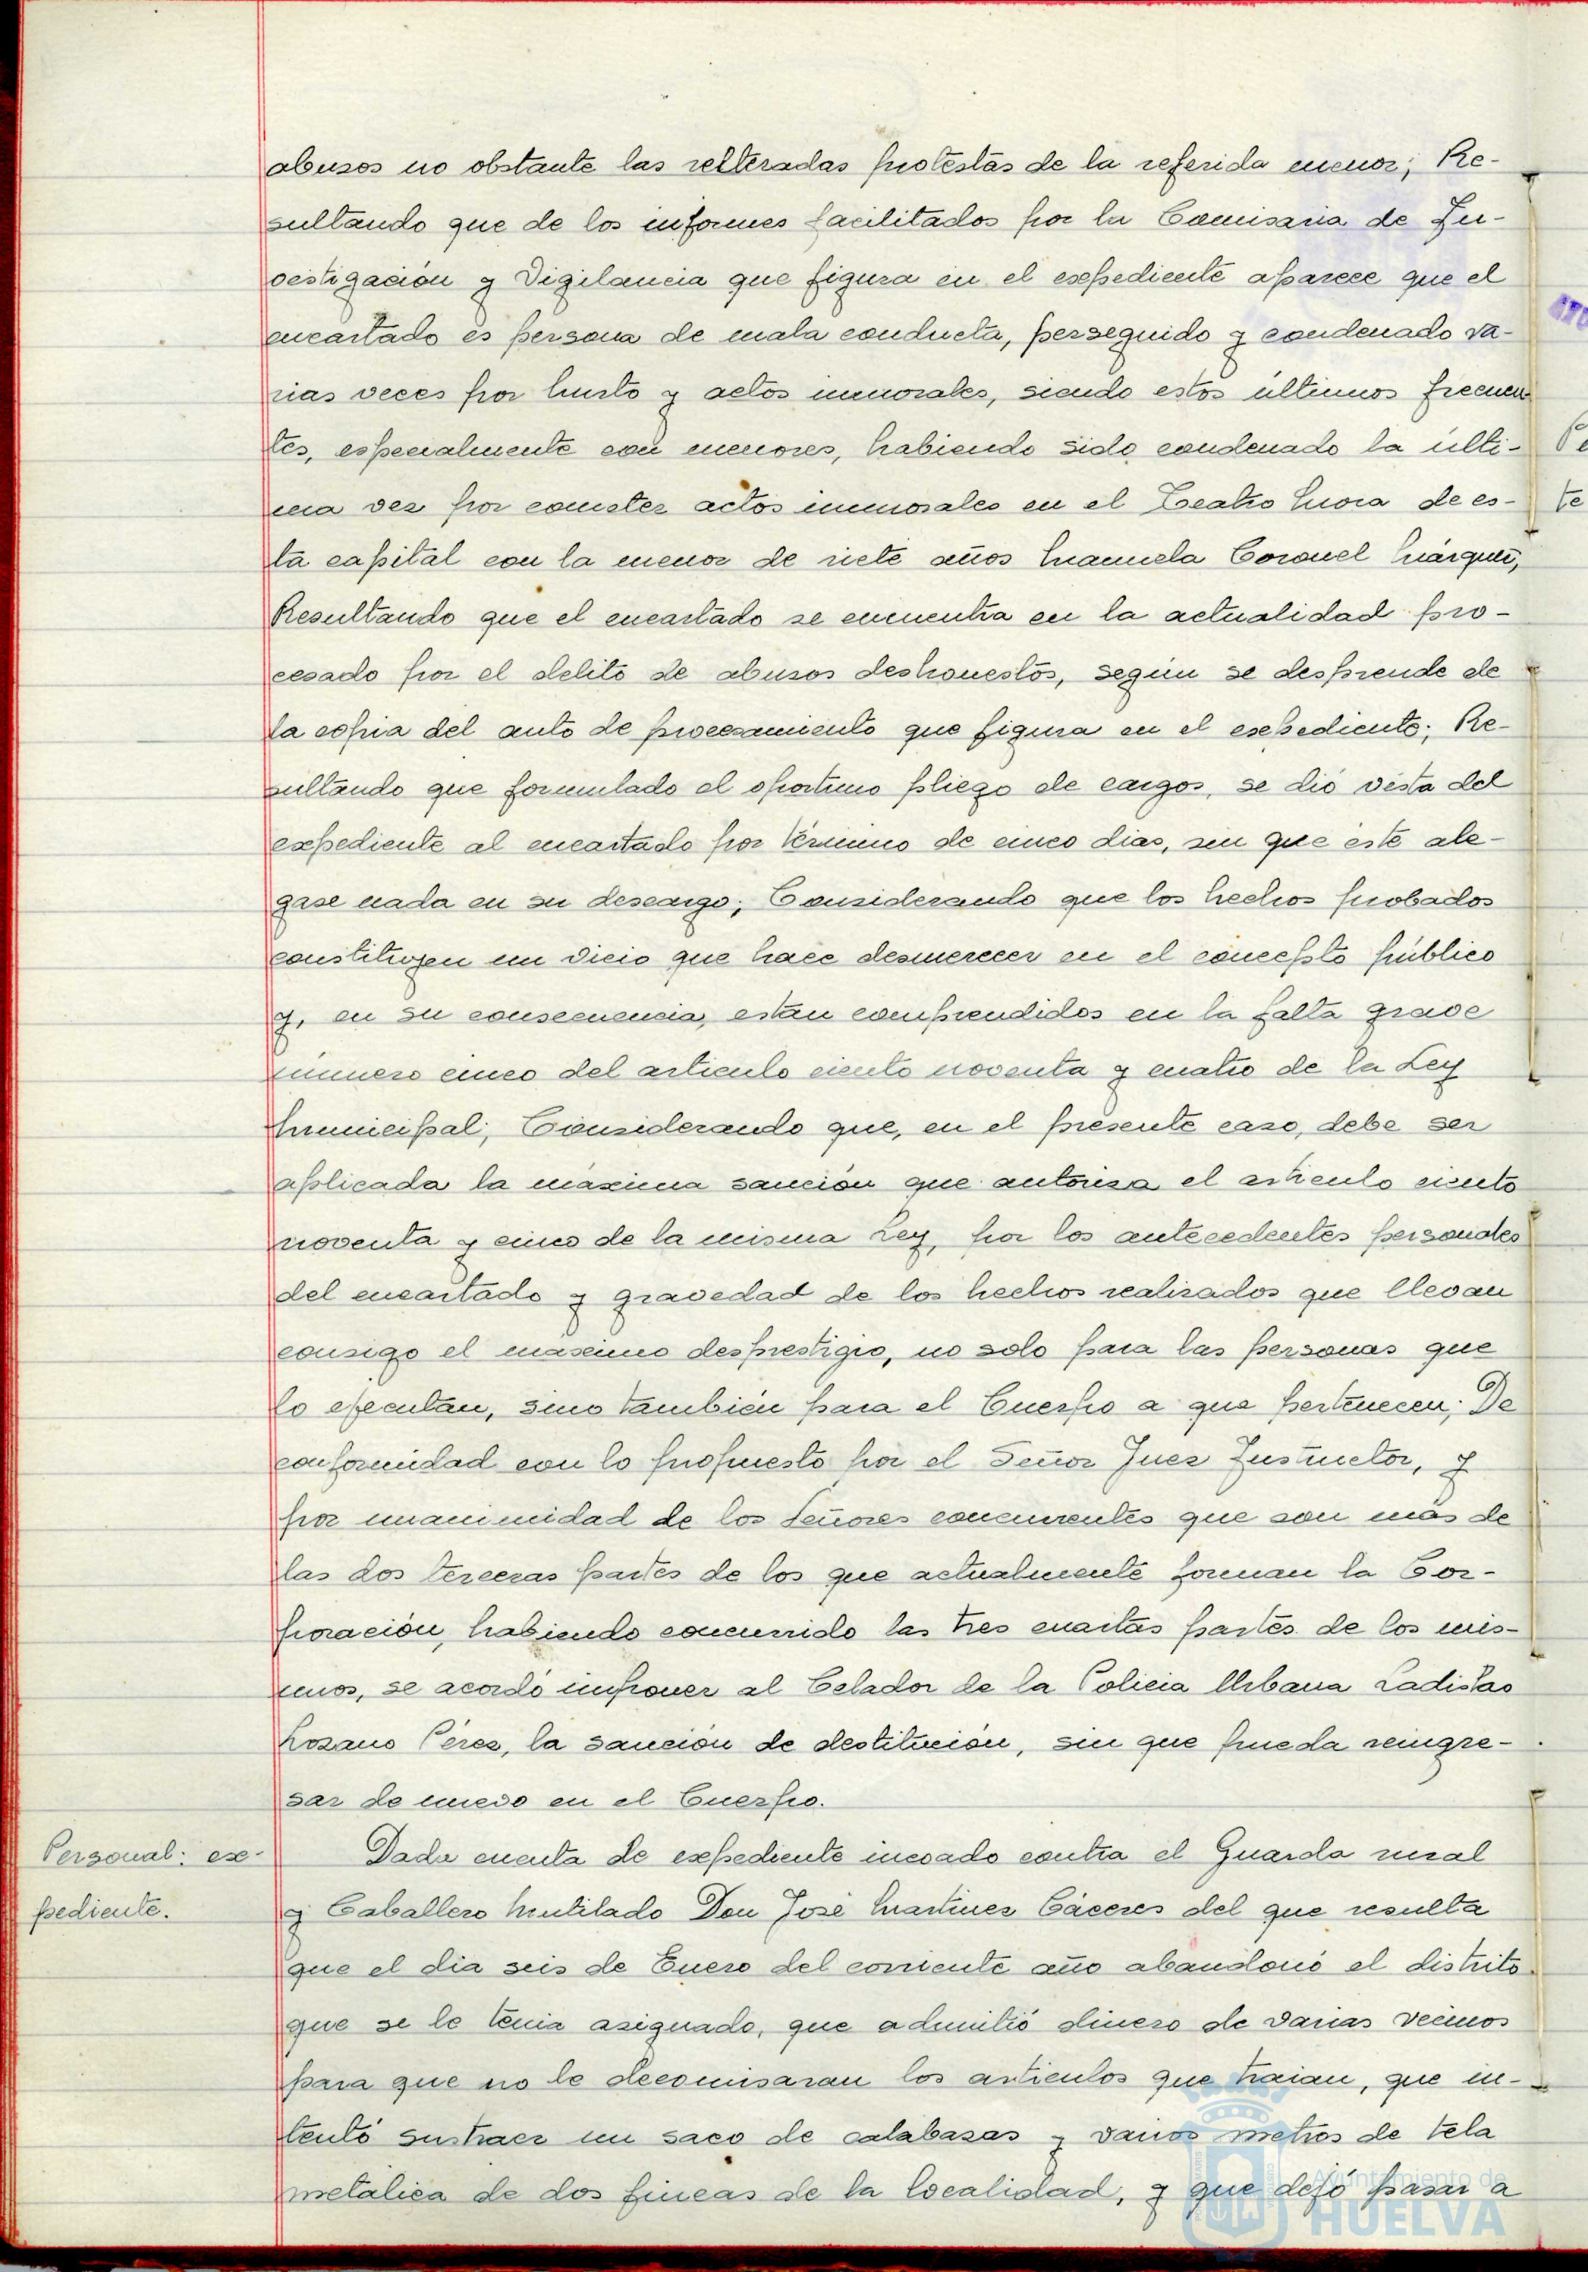 abusos no obstante las reiteradas protestas de la referida menor; Re-
sultando que de los informes facilitados por la Comisaria de In-
vestigación y Vigilancia que figura en el expediente aparece que el
encartado es persona de mala conducta, perseguido y condenado va-
rias veces por hurto y actos inmorales, siendo estos últimos frecuen-
tes, especialmente con menores, habiendo sido condenado la últi-
ma vez por cometer actos inmorales en el Teatro Mora de es-
ta capital con la menor de siete años Manuela Coronel Márquez,
Resultando que el encartado se encuentra en la actualidad pro-
cesado por el delito de abusos deshonestos, según se desprende de
la copia del auto de procesamiento que figura en el expediente; Re-
sultando que formulado el oportuno pliego de cargos, se dió vista del
expediente al encartado por término de cinco dias, sin que éste ale-
gase nada en su descargo; Considerando que los hechos probados
constituyen un vicio que hace desmerecer en el concepto público
y, en su consecuencia, están comprendidos en la falta grave
número cinco del articulo ciento noventa y cuatro de la Ley
Municipal; Considerando que, en el presente caso, debe ser
aplicada la máxima sanción que autoriza el articulo ciento
noventa y cinco de la misma Ley, por los antecedentes personales
del encartado y gravedad de los hechos realizados que llevan
consigo el máximo desprestigio, no solo para las personas que
lo ejecutan, sino también para el Cuerpo a que pertenecen; De
conformidad con lo propuesto por el Señor Juez Instructor, y
por unanimidad de los Señores concurrentes que son más de
las dos terceras partes de los que actualmente forman la Cor-
poración, habiendo concurrido las tres cuartas partes de los mis-
mos, se acordó imponer al Celador de la Policia Urbana Ladislao
Lozano Pérez, la sanción de destitución, sin que pueda reingre-
sar de nuevo en el Cuerpo.
Personal: ex-
pediente.
Dada cuenta de expediente incoado contra el Guarda rural
y Caballero Mutilado Don José Martinez Cáceres del que resulta
que el dia seis de Enero del corriente año abandonó el distrito
que se le tenia asignado, que admitió dinero de varias vecinos
para que no le decomisaran los articulos que traian, que in-
tentó sustraer un saco de calabazas y varios metros de tela
metálica de dos fincas de la localidad, y que dejó pasar a
Pe
te
Ayuntamiento de
HUELVA